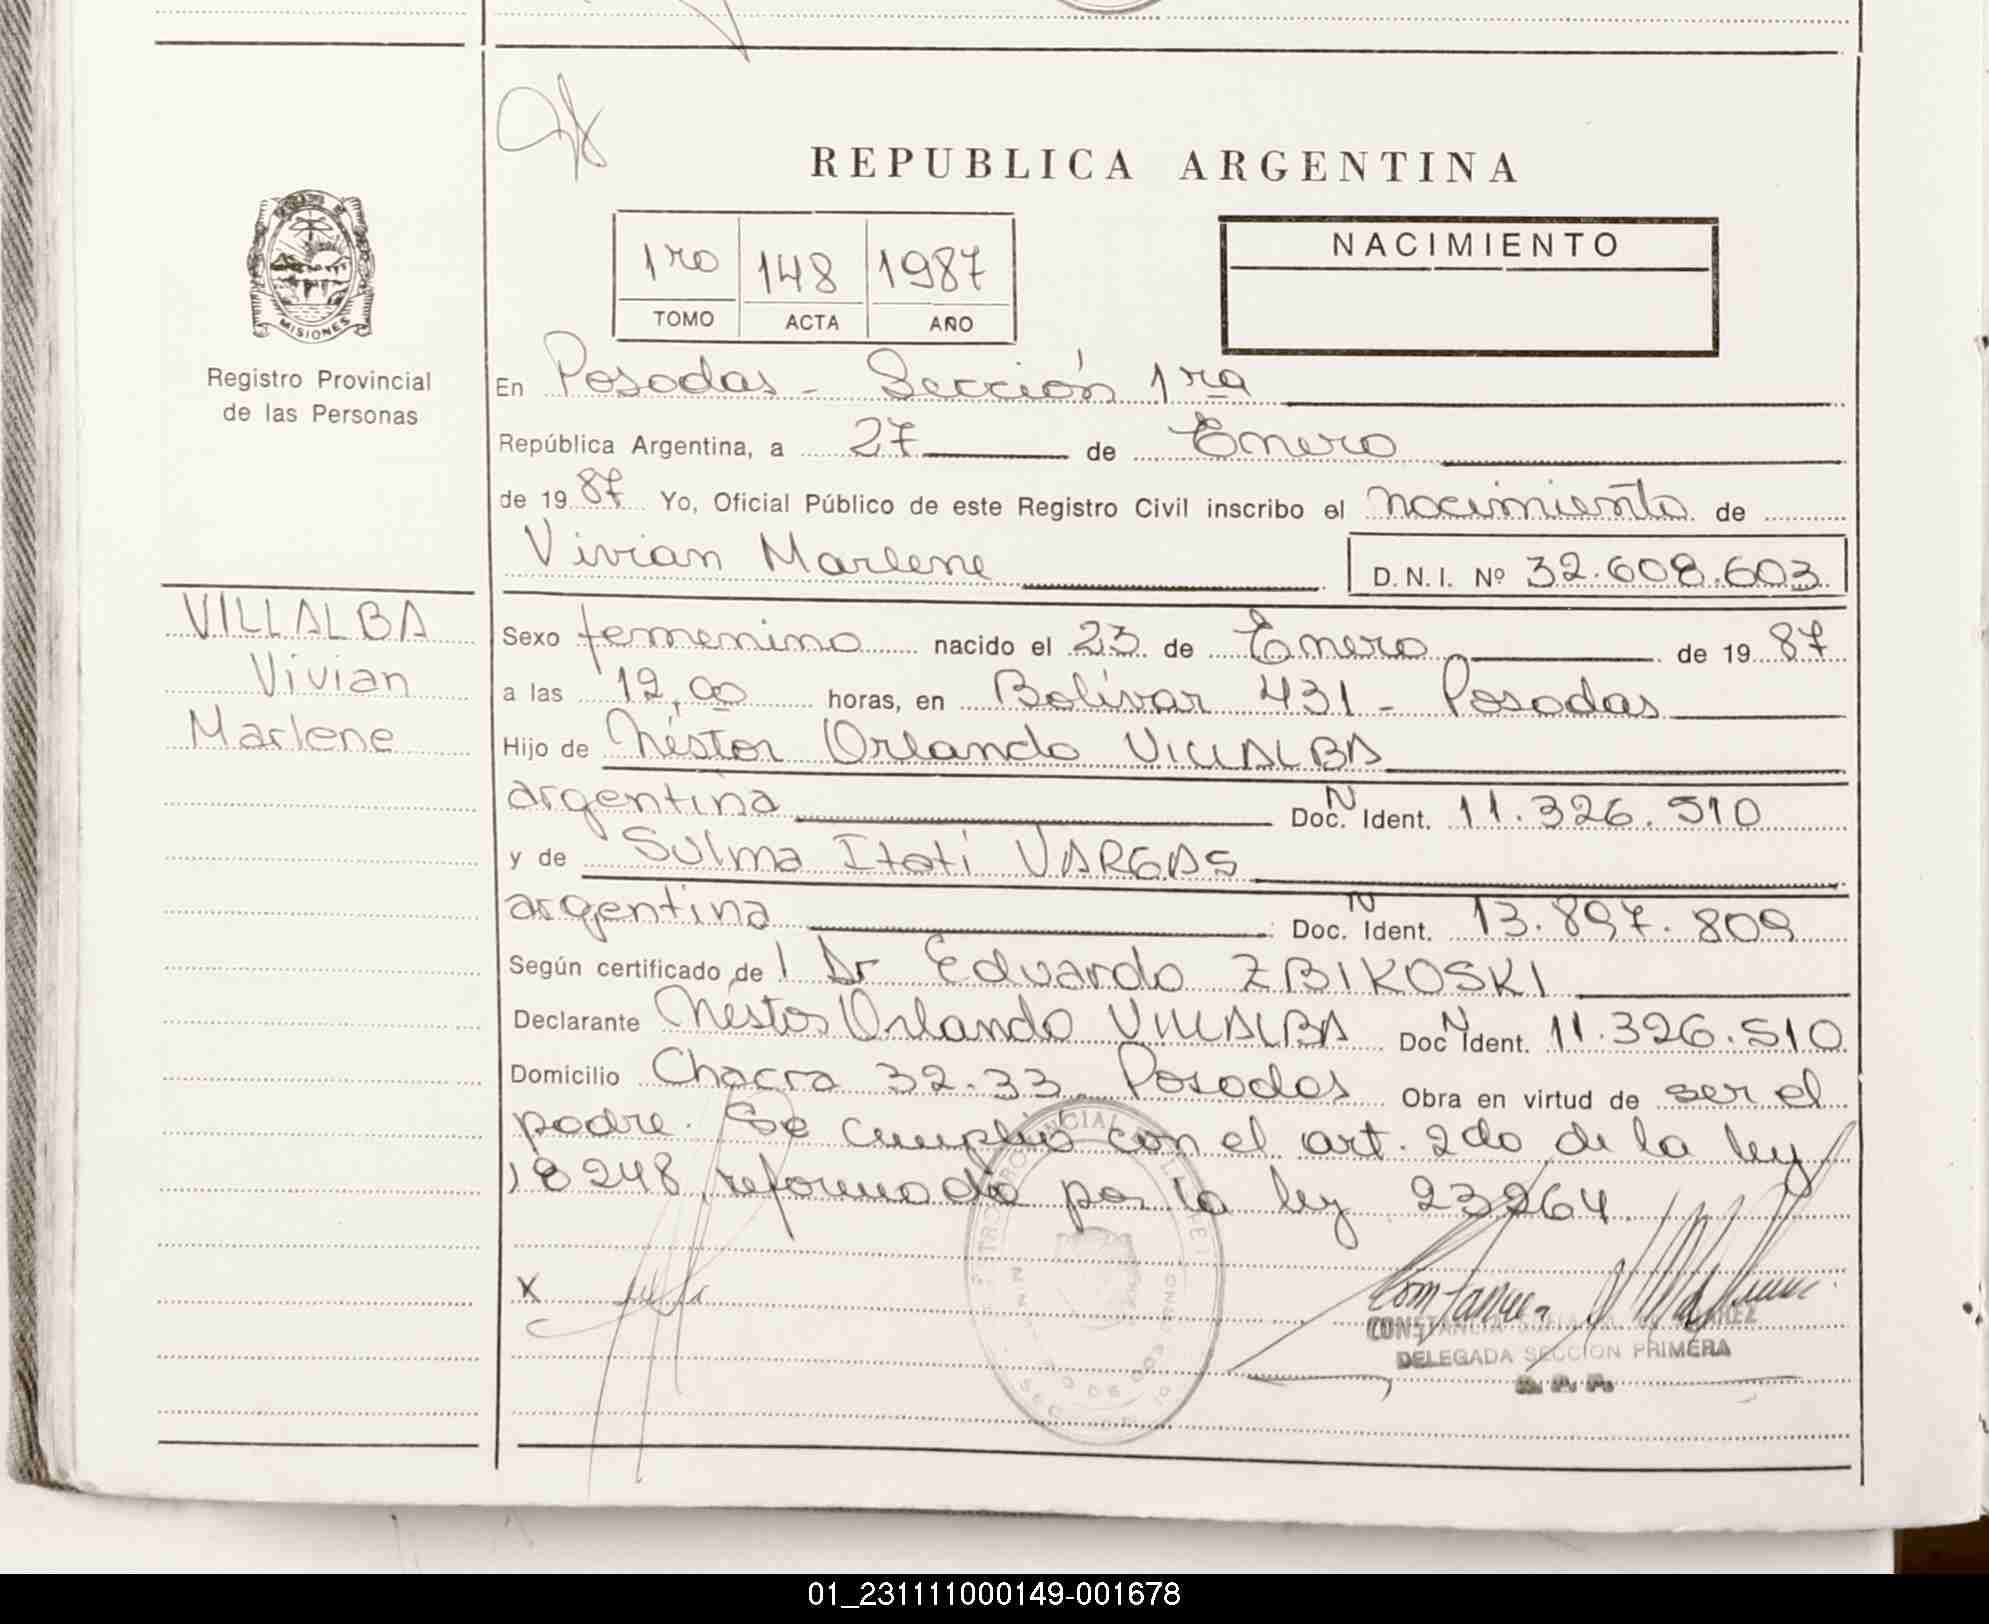 REPUBLICA ARGENTINA
1ro 148 1987
TOMO ACTA AÑO
NACIMIENTO
MISIONES
Registro Provincial
de las Personas
En Posadas - Sección 1ra
República Argentina, a 27 de Enero
de 1987 Yo, Oficial Público de este Registro Civil inscribo el nacimiento de
Vivian Marlene D.N.I. Nº 32.608.603
VILLALBA
Vivian
Marlene
Sexo femenino nacido el 23 de Enero de 1987
a las 12,00 horas, en Bolívar 431 - Posadas
Hijo de Néstor Orlando VILLALBA
argentina Doc. N Ident. 11.326.510
y de Sulma Itatí VARGAS
argentina Doc. N Ident. 13.897.809
Según certificado de l Dr Eduardo ZBIKOSKI
Declarante Néstor Orlando VILLALBA Doc N Ident. 11.326.510
Domicilio Chacra 32-33 Posadas Obra en virtud de ser el
padre. Se cumplió con el art. 2do de la ley
18248, reformada por la ley 23264
X
DELEGADA SECCION PRIMERA
01_231111000149-001678